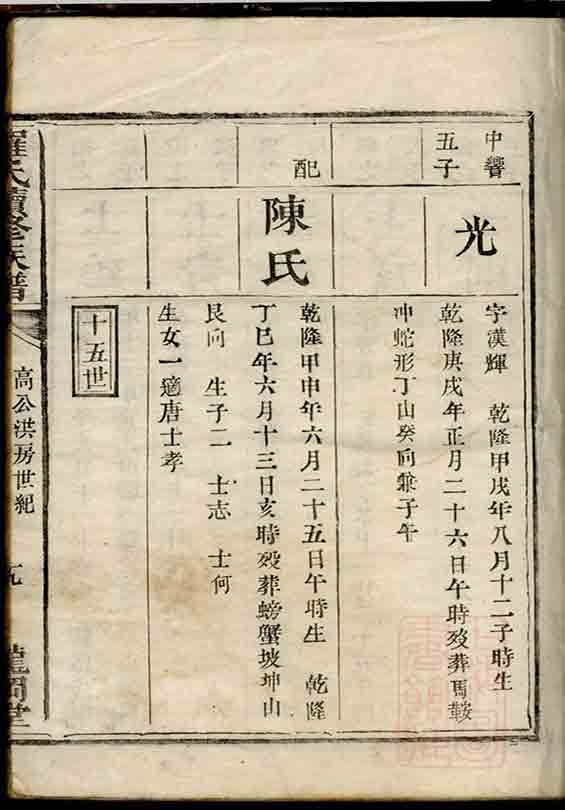 中響
五子
光
字漢輝　乾隆甲戌年八月十二子時生
乾隆庚戌年正月二十六日午時歿葬馬鞍
冲蛇形丁山癸向兼子午
配
陳氏
乾隆甲申年六月二十五日午時生　乾隆
丁巳年六月十三日亥時歿葬螃蟹坡坤山
艮向　生子二　士志　士何
生女一適唐士孝
十五世
羅氏續修族譜
高公洪房世紀